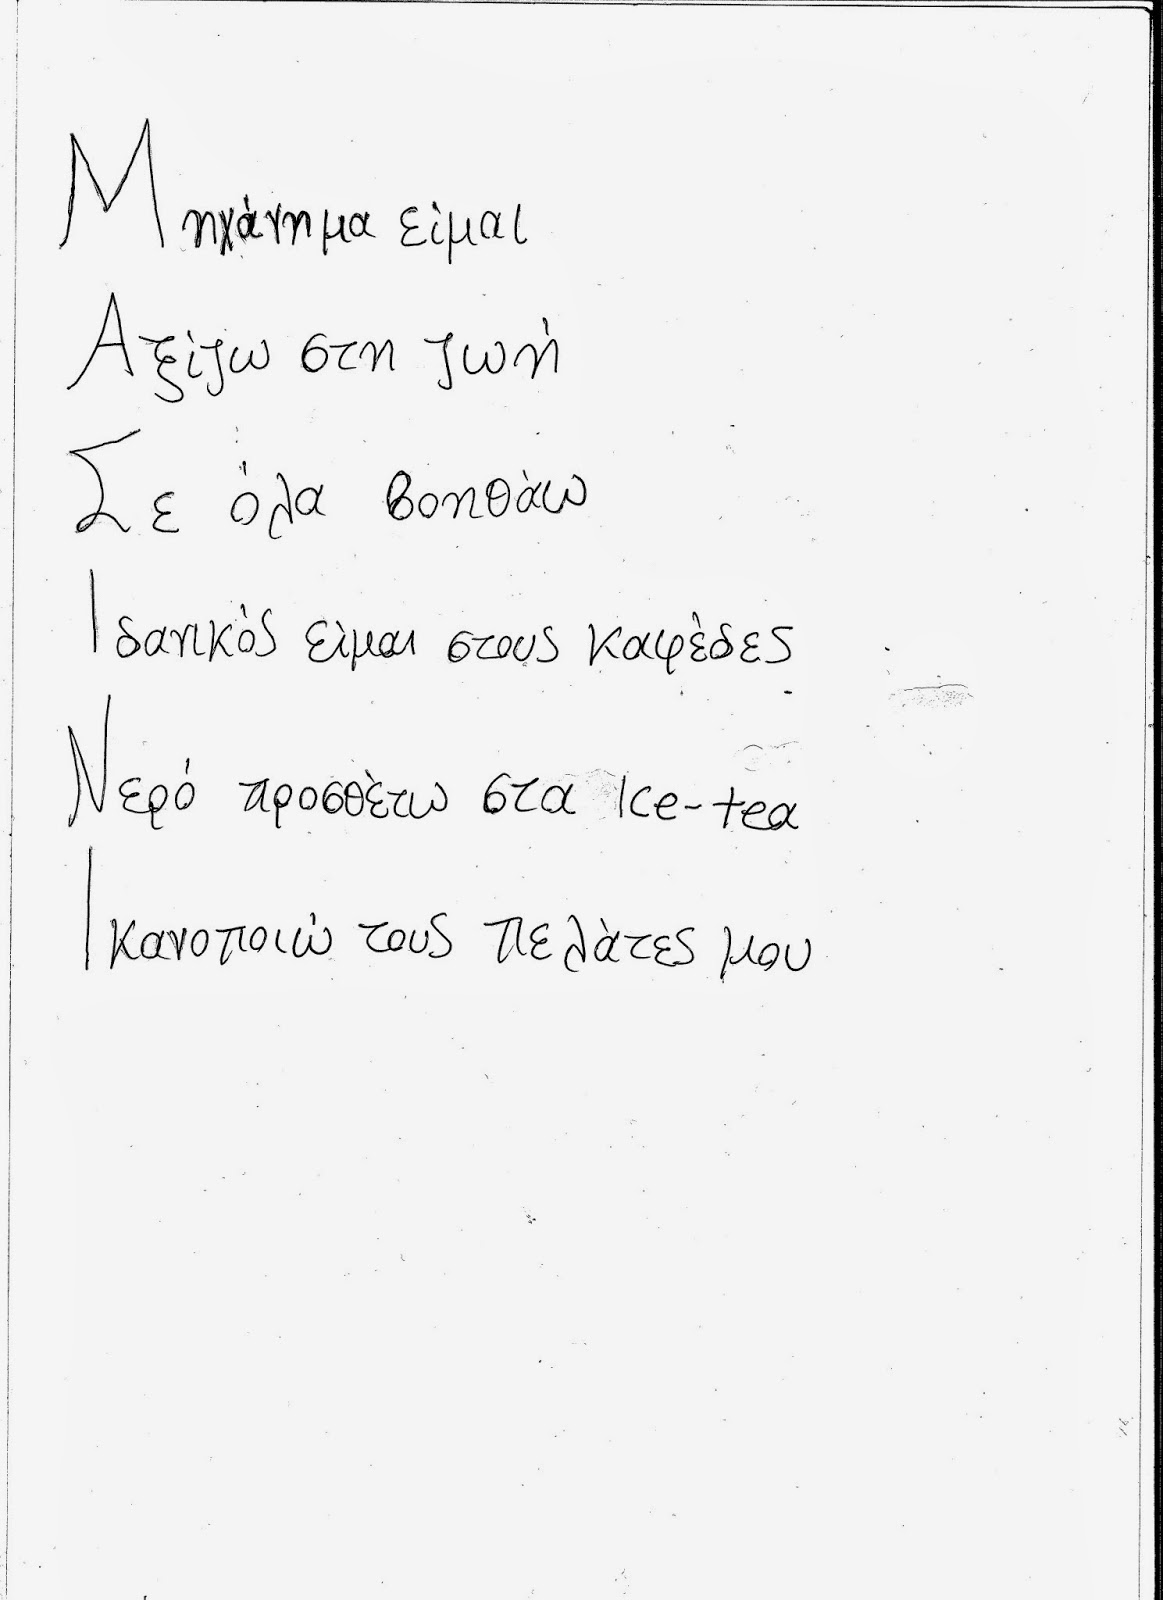 Μηχάνημα είμαι
Αξίζω στη ζωή
Σε όλα βοηθάω
Ιδανικός είμαι στους καφέδες
Νερό προσθέτω στα Ice-tea
Ικανοποιώ τους πελάτες μου